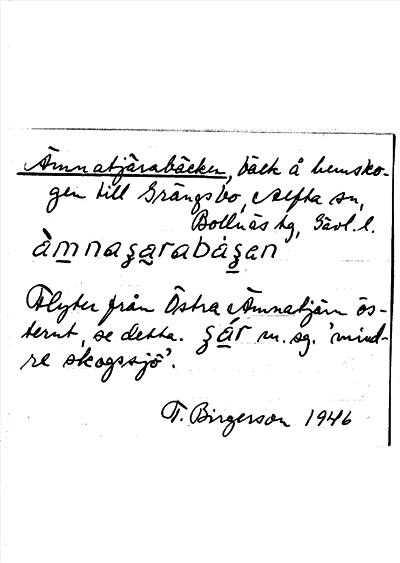 Ämnatjärabäcken, bäck å hemsko-
gen till Grängsbo, Alfta sn,
Bollnäs tg, Gävl. l.
àm̲naʒa̲rabáʒ̲an
Flyter från Östra Ämnatjärn ös-
terut, se detta. ʒá̲r m. sg. 'mind-
re skogssjö'.
T. Birgerson 1946